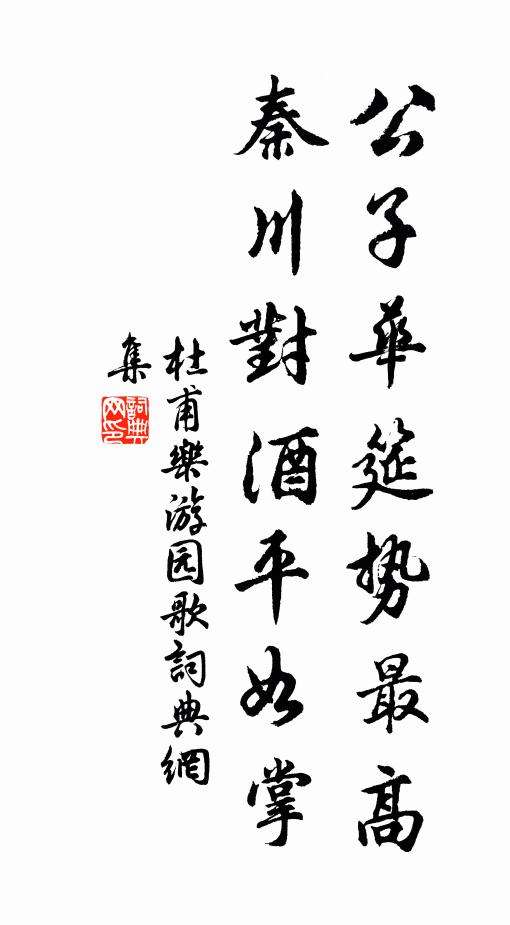 公子華筵勢最高
秦川對酒平如掌
杜甫樂游园歌詞典網
集
詞典網印